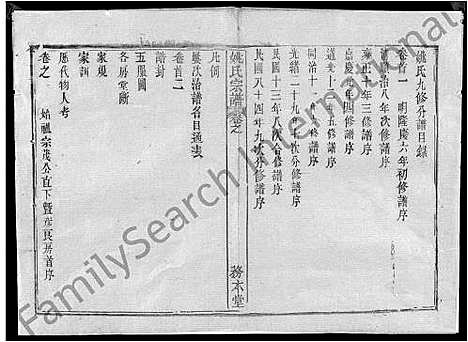 姚氏九修分譜目錄
卷首一 明隆慶六年初修譜序
順治八年次修譜序
雍正十年三修譜序
嘉慶元年四修譜序
道光十七年五修譜序
同治十一年六修譜序
光緒二十九年七修譜序
民國十三年八次合修譜序
民國八十四年九次分修譜序
姚氏宗譜 卷之一
務本堂
凡例
歷次治譜名目遞表
卷首二
譜封
五服圖
各房堂齋
家規
家訓
歷代物人考
卷之一 始祖宗茂公直下暨彥良房首序
FamilySearch International